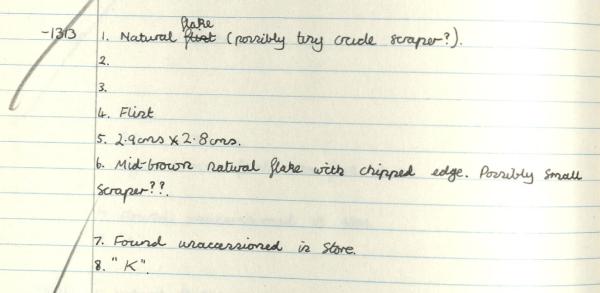 -1313
1. Natural flake (possibly tiny crude scraper?).
2.
3.
4. Flint
5. 2.9cms x 2.8cms.
6. Mid-brown natural flake with chipped edge. Possibly small
scraper??.
7. Found unaccessioned in store.
8. "K".